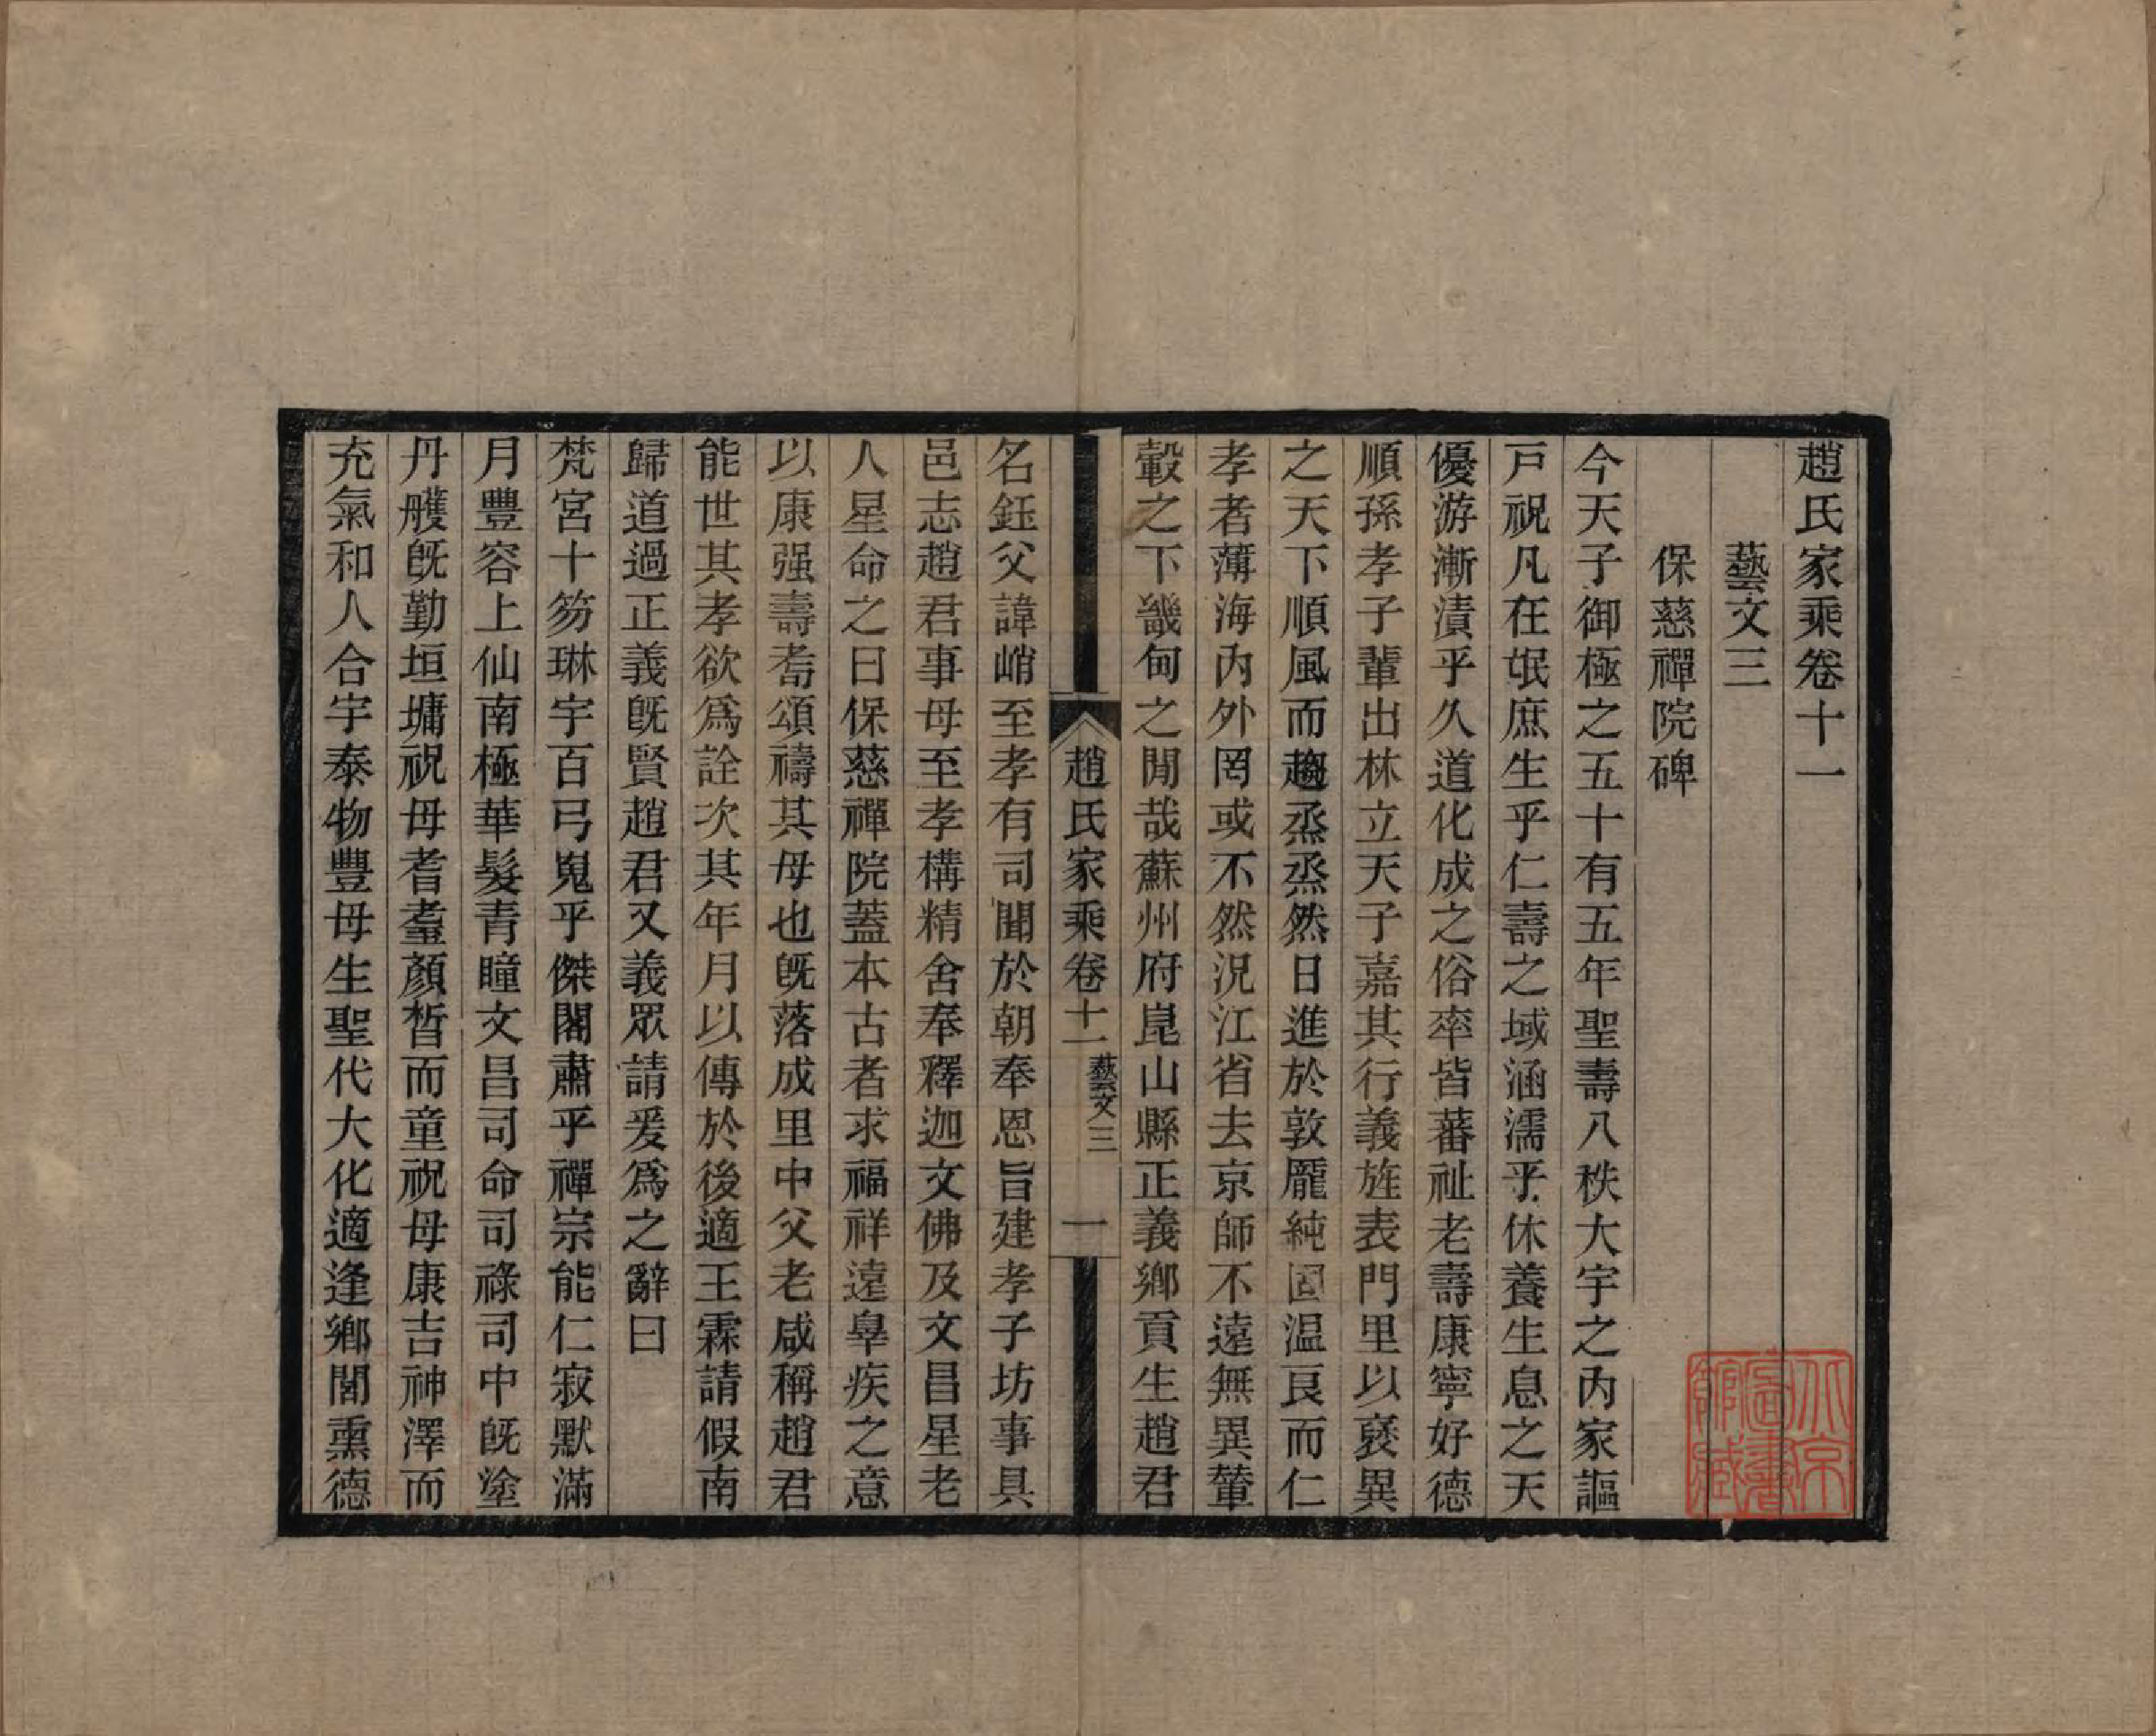 趙氏家乘卷十一
藝文三
保慈禪院碑
今天子御極之五十有五年聖壽八秩大宇之內家謳
戸祝凡在氓庶生乎仁壽之域涵濡乎休養生息之天
優游漸漬乎久道化成之俗率皆蕃祉老壽康寧好德
順孫孝子輩出林立天子嘉其行義旌表門里以裦異
之天下順風而趨烝烝然日進於敦龎純固温良而仁
孝者薄海內外罔或不然況江省去京師不遠無異輦
轂之下畿甸之閒哉蘇州府崑山縣正義鄉貢生趙君
趙氏家乘卷十一
藝文三
一
名鈺父諱峭至孝有司聞於朝奉恩旨建孝子坊事具
邑志趙君事母至孝構精舍奉釋迦文佛及文昌星老
人星命之曰保慈禪院蓋本古者求福祥遠辠疾之意
以康强壽耇頌禱其母也旣落成里中父老咸稱趙君
能世其孝欲爲詮次其年月以傳於後適王霖請假南
歸道過正義旣賢趙君又義眾請爰爲之辭曰
梵宮十笏琳宇百弓嵬乎傑閣肅乎禪宗能仁寂默滿
月豐容上仙南極華髮青瞳文昌司命司祿司中旣塗
丹雘旣勤垣墉祝母耆耋顏晳而童祝母康吉神澤而
充氣和人合宇泰物豐母生聖代大化適逢鄉閭熏德
北京圖書館藏